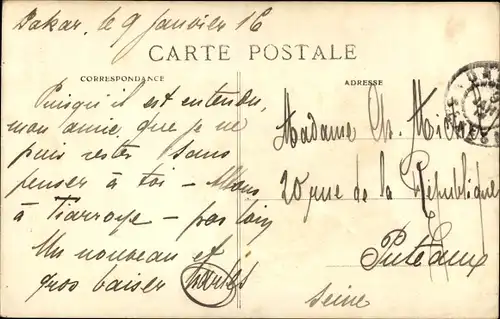 Dakar, le 9 Janvier 16
CARTE POSTALE
CORRESPONDANCE
ADRESSE
Puisqu'il est entendu,
mon amie, que je ne
puis rester sans
penser à toi - Allons
à Tiaroye - pas loin
Un nouveau et
gros baiser Charles
Madame Ch. 
20 rue de la République
Puteaux
Seine